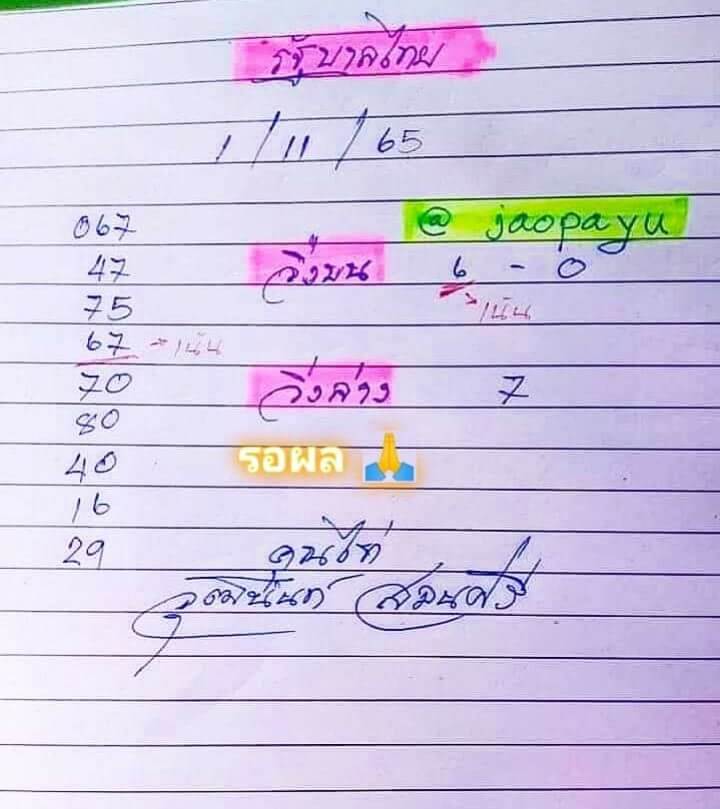 รัฐบาลไทย
1/11/65
067
@ jaopayu
47
วิ่งบน 6 - 0
75
→ เน้น
67 → เน้น
70
วิ่งล่าง 7
80
รอผล 🙏
40
16
29
วุฒินันท์ สมนศรี